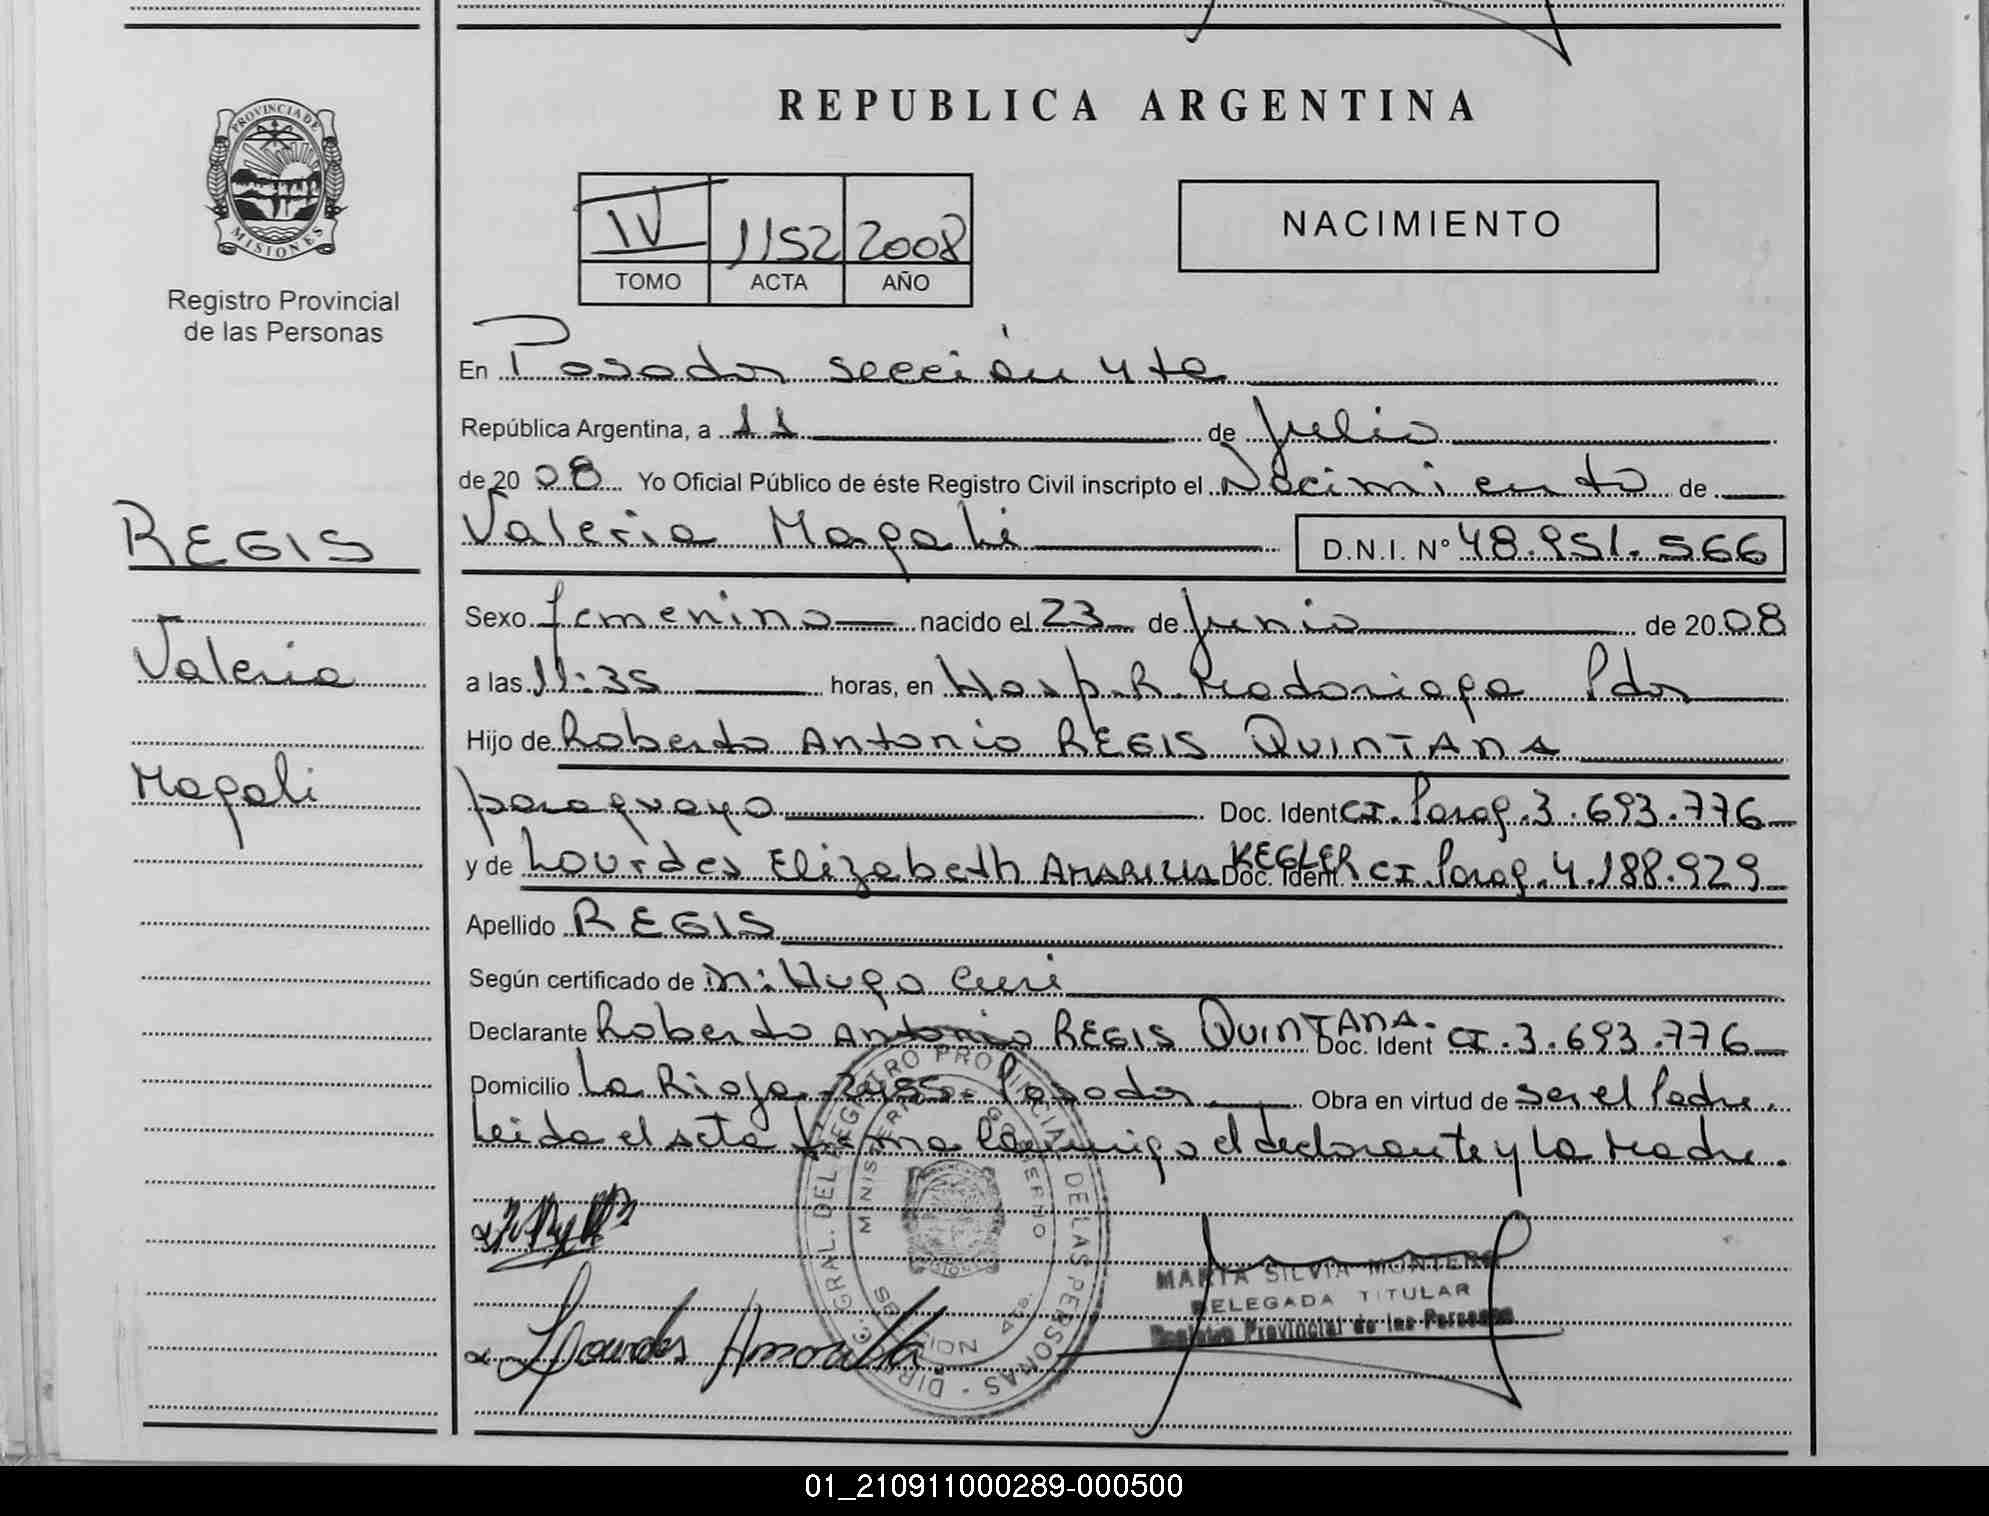 PROVINCIA DE
MISIONES
Registro Provincial
de las Personas
REGIS
Valeria
Magali
REPUBLICA ARGENTINA
IV 1152 2008
TOMO ACTA AÑO
NACIMIENTO
En Posadas sección 4ta
República Argentina, a 11 de Julio
de 2008 Yo Oficial Público de éste Registro Civil inscripto el Nacimiento de
Valeria Magali D.N.I. N° 48.951.566
Sexo femenino nacido el 23 de Junio de 2008
a las 11:35 horas, en Hosp. R. Madariaga Pdas
Hijo de Roberto Antonio REGIS QUINTANA
paraguayo Doc. Ident CI. Parag. 3.693.776
y de Lourdes Elizabeth AMARILLA KEGLER Doc. Ident. CI. Parag. 4.188.929
Apellido REGIS
Según certificado de M: Hugo Curi
Declarante Roberto Antonio REGIS QUINTANA. Doc. Ident CI. 3.693.776
Domicilio La Rioja Posadas Obra en virtud de ser el Padre.
Leida el acta firma conmigo el declarante y la Madre.
DIREC. GRAL. DEL REGISTRO PROVINCIAL DE LAS PERSONAS
MINISTERIO DE GOBIERNO
Lourdes Amarilla
MARTA SILVIA MONTERO
DELEGADA TITULAR
Registro Provincial de las Personas
01_210911000289-000500